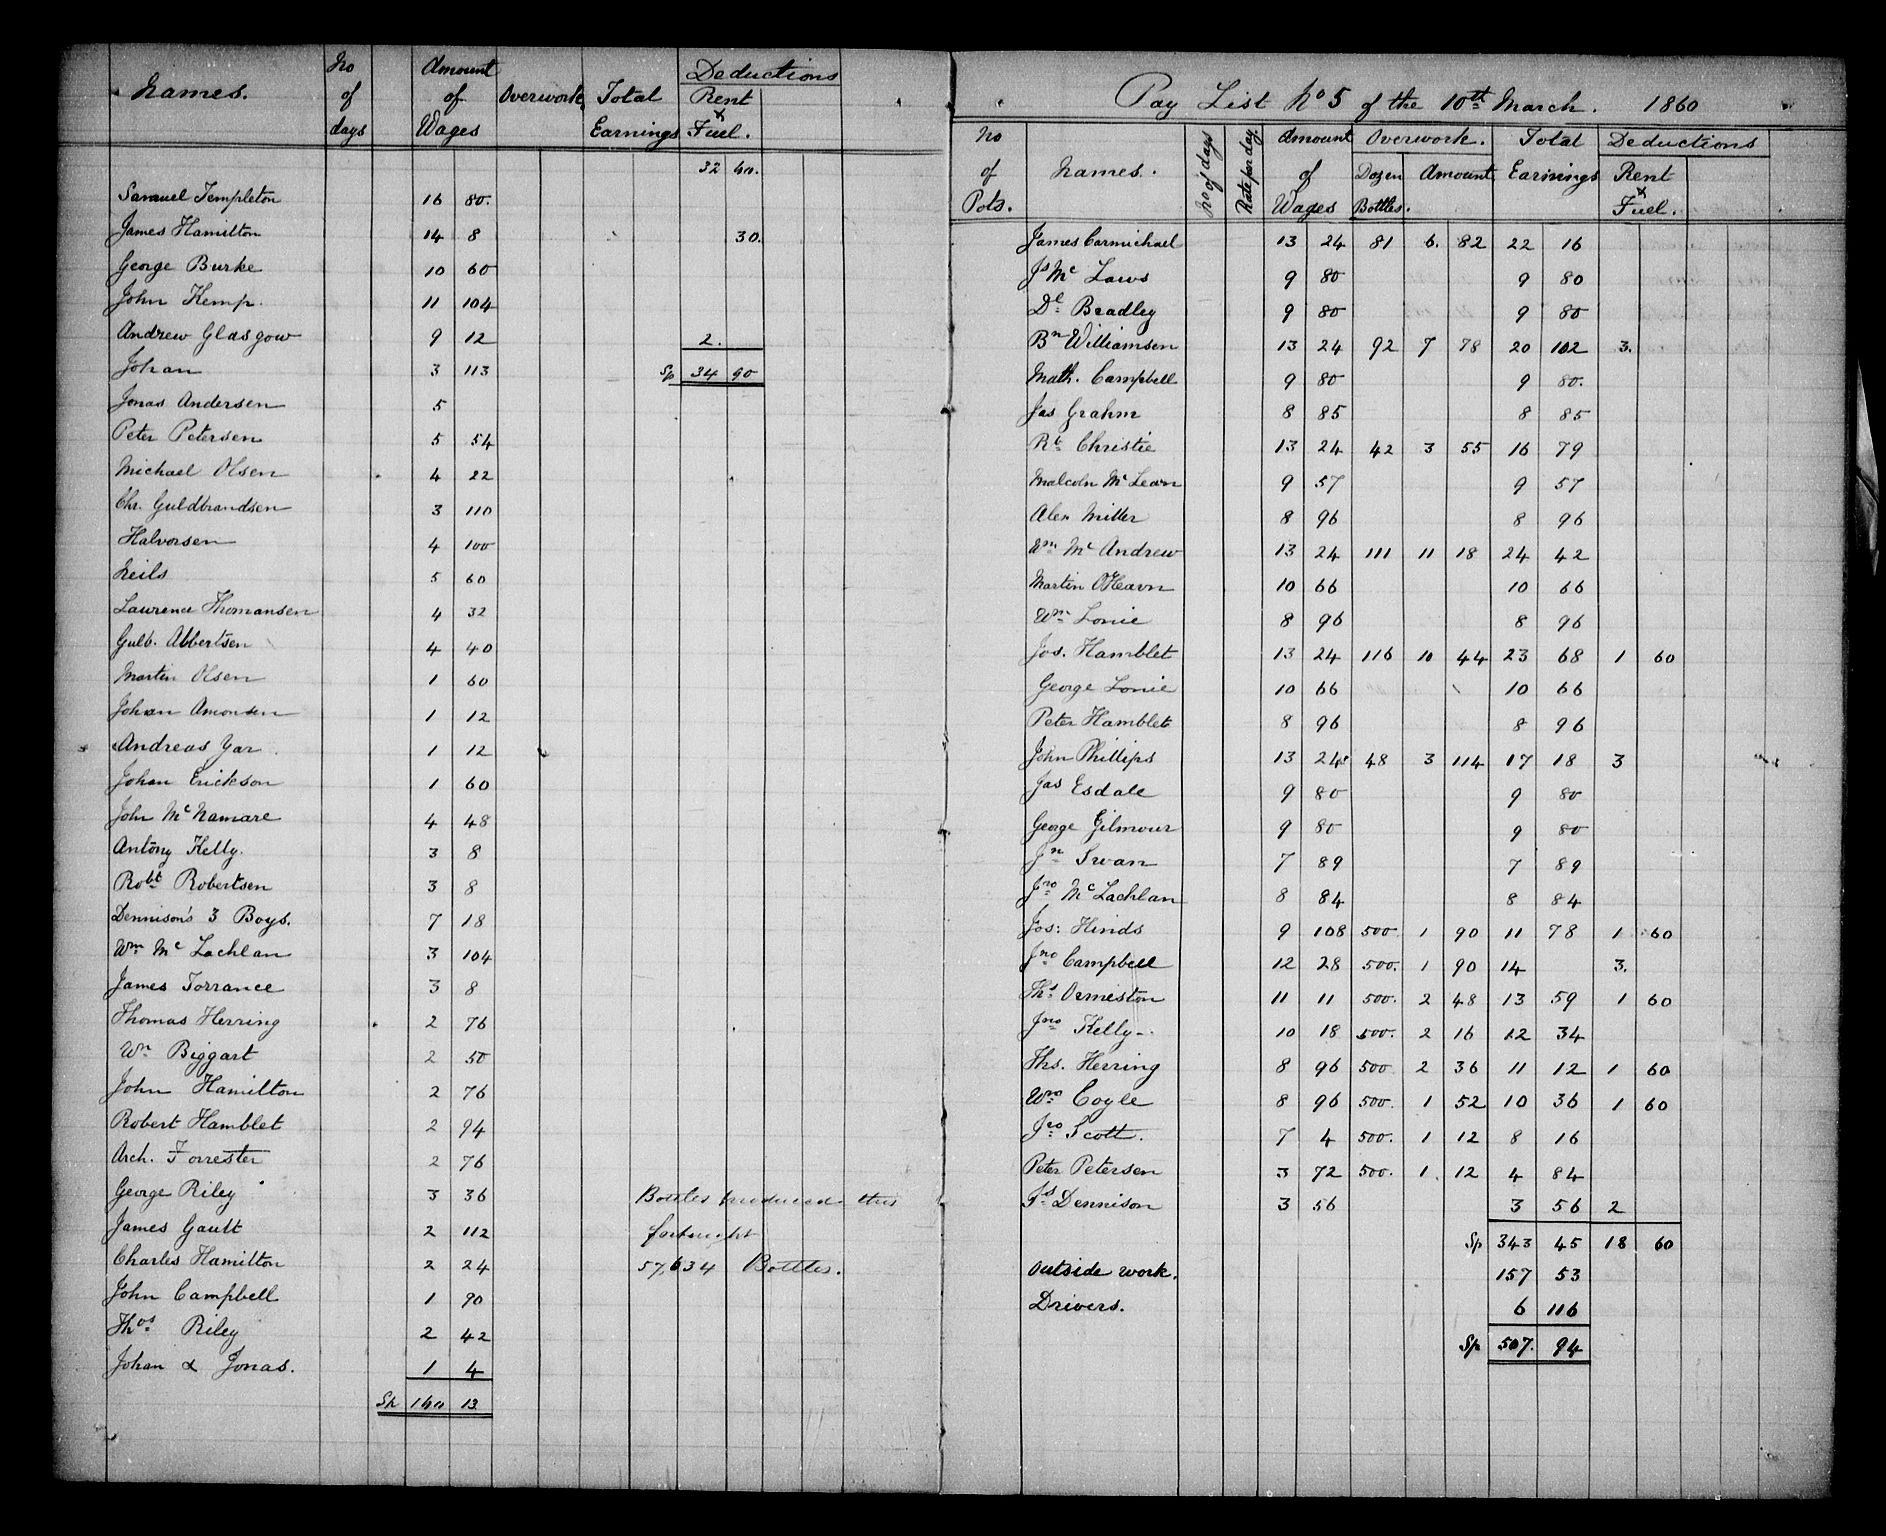 Names. No of days Amount of Wages Overwork Total Earnings Deductions Rent & Fuel.
32 60.
Samuel Templeton 16 80.
James Hamilton 14 8 30.
George Burke 10 60
John Kemp. 11 104
Andrew Glasgow 9 12 2.
Johan 3 113 Sp 34 90
Jonas Andersen 5
Peter Petersen 5 54
Michael Olsen 4 22
Chr. Guldbrandsen 3 110
Halvorsen 4 100
Neils 5 60
Laurence Thomansen 4 32
Gulb. Abbertsen 4 40
Martin Olsen 1 60
Johan Amonsen 1 12
Andreas Yar 1 12
Johan Erickson 1 60
John McNamare 4 48
Antony Kelly. 3 8
Robt Robertsen 3 8
Dennison's 3 Boys. 7 18
Wm Mc Lachlan 3 104
James Torrance 3 8
Thomas Herring 2 76
Wm Biggart 2 50
John Hamilton 2 76
Robert Hamblet 2 94
Arch. Forrester 2 76
George Riley 3 36 Bottles produced this
James Gault 2 112 fortnight
Charles Hamilton 2 24 57,634 Bottles.
John Campbell 1 90
Thos Riley 2 42
Johan & Jonas. 1 4
Sp 160 13
Pay List No 5 of the 10th March. 1860
No of Pots. Names. No of days Rate per day. Amount of Wages Overwork. Dozen Bottles. Amount Total Earnings Deductions Rent & Fuel.
James Carmichael 13 24 81 6. 82 22 16
Js Mc Laws 9 80 9 80
Dl Bradley 9 80 9 80
Bn Williamsen 13 24 92 7 78 20 102 3.
Math. Campbell 9 80 9 80.
Jas Grahm 8 85 8 85
Rt Christie 13 24 42 3 55 16 79
Malcoln Mc Lean 9 57 9 57
Alex Miller 8 96 8 96
Wm Mc Andrew 13 24 111 11 18 24 42
Martin O'Hearn 10 66 10 66
Wm Lonie 8 96 8 96
Jos. Hamblet 13 24 116 10 44 23 68 1 60
George Lonie 10 66 10 66
Peter Hamblet 8 96 8 96
John Phillips 13 24 48 3 114 17 18 3
Jas Esdale 9 80 9 80
George Gilmour 9 80 9 80
Jn Swan 7 89 7 89
Jno Mc Lachlan 8 84 8 84
Jos: Hinds 9 108 500. 1 90 11 78 1 60
Jno Campbell 12 28 500. 1 90 14 3.
Ths Ormiston 11 11 500. 2 48 13 59 1 60
Jno Kelly- 10 18 500. 2 16 12 34
Ths. Herring 8 96 500 2 36 11 12 1 60
Wm Coyle 8 96 500. 1 52 10 36 1 60
Jno Scott. 7 4 500. 1 12 8 16
Peter Petersen 3 72 500. 1. 12 4 84
Js Dennison 3 56 3 56 2
Sp 343 45 18 60
Outside work. 157 53
Drivers. 6 116
Sp 507. 94